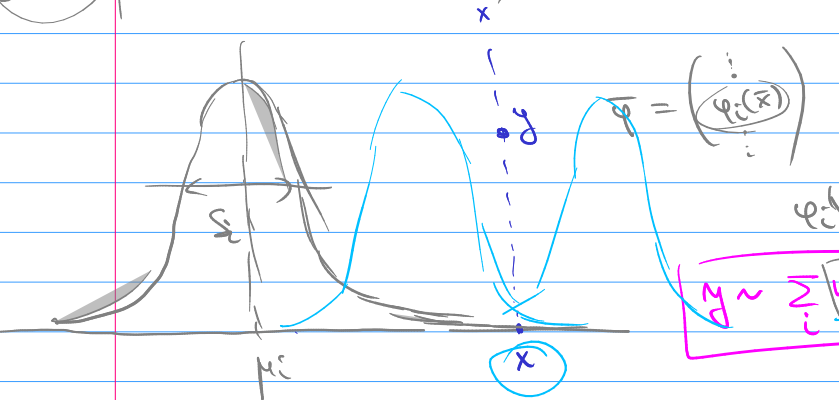 x
y
φ̄ = ( ⋮ φᵢ(x̄) ⋮ )
Sᵢ
φᵢ
y ~ Σᵢ
μᵢ
x